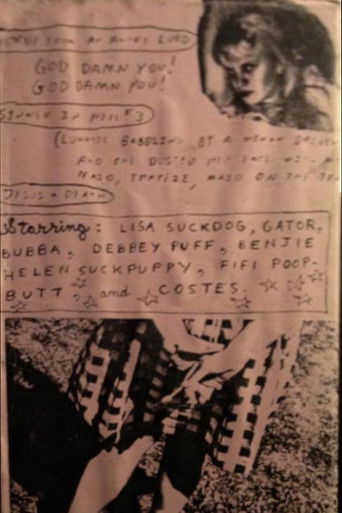 FROM AN ANGRY LORD
GOD DAMN YOU!
GOD DAMN YOU!
SINNER IN HELL #3
(LUNATIC BABBLING BY A
AND SHE DUSTED
ON THE
JESUS + DEATH
Starring: LISA SUCKDOG, GATOR,
BUBBA, DEBBEY PUFF, BENJIE
HELEN SUCKPUPPY, FIFI POOP-
BUTT, and COSTES.